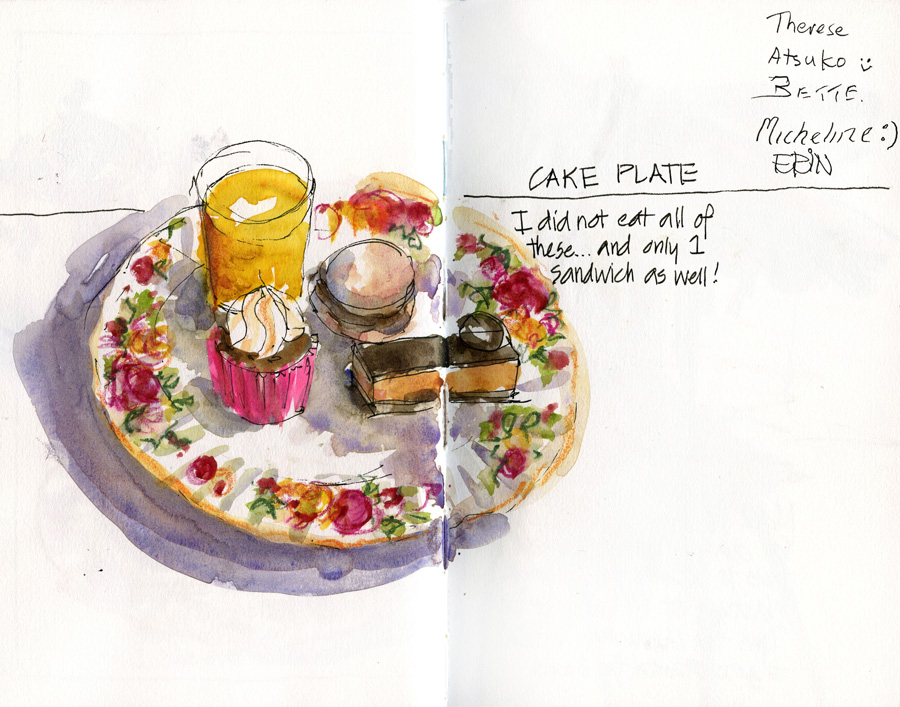 Therese
Atsuko :)
BETTE.
Micheline :)
ERIN
CAKE PLATE
I did not eat all of
these... and only 1
sandwich as well!